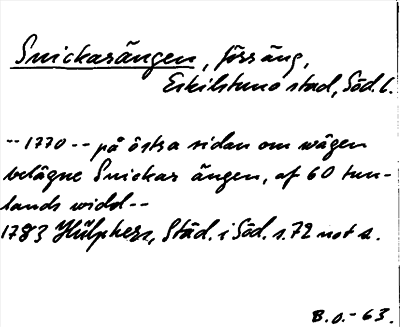 Snickarängen, förs äng,
Eskilstuna stad, Söd. l.
-- 1770 -- på östra sidan om wägen
belägne Snickar ängen, af 60 tun-
lands widd --
1783 Hülphers, Städ. i Söd. s. 72 not a.
B.O. - 63.